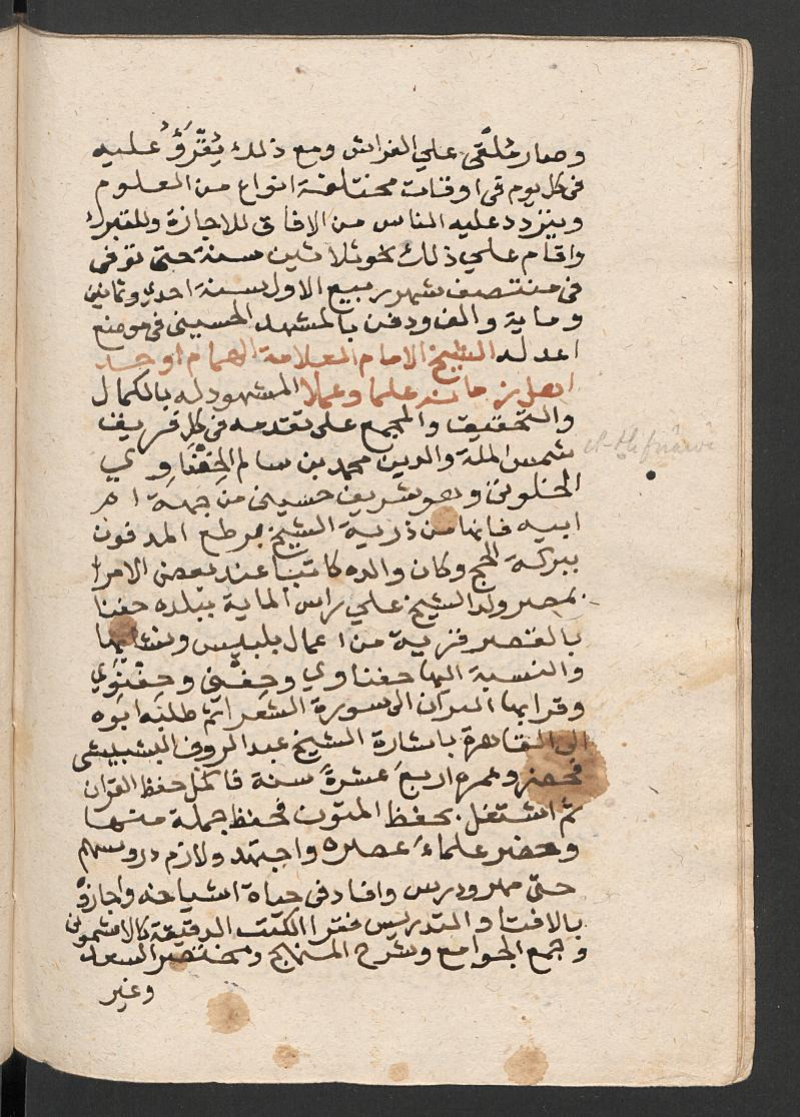 وصار مُلَقَّى علي الفراش ومع ذلك يُقْرَؤُ عليه
في كل يوم في اوقات مختلفة انواع من العلوم
ويتردد عليه الناس من الافاق للاجازة وللتبرك
واقام علي ذلك نحو ثلاثين سنة حتى توفى
في منتصف شهر ربيع الاول سنة احدي وثمانين
وماية والف ودفن بالمشهد الحسيني في موضع
اعد له الشيخ الامام العلامة الهمام اوحد
اهل زمانه علما وعملا المشهود له بالكمال
والتحقيق والمجمع على تقدمه في كل فريق
شمس الملة والدين محمد بن سالم الحِفْنَاوِي
el-Hifnâwi
الخلوتي وهو شريف حسيني من جهة ام
ابيه فانها من ذرية الشيخ برطع المدفون
ببركة الحج وكان والده كاتبا عند بعض الامرا
بمصر ولد الشيخ علي راس الماية ببلده حفنا
بالقصر قرية من اعمال بلبيس ونشا بها
والنسبة اليها حفناوي وحِفْني وحِفْنَوي
وقرا بها القران الى سورة الشعرا ثم طلبه ابوه
الى القاهرة باشارة الشيخ عبد الروف البشبيشي
فحضر وعمره اربعَ عشرةَ سنة فاكمل حفظ القران
ثم اشتغل بحفظ المتون فحفظ جملة منها
وحضر علماءَ عصره واجتهد ولازم دروسهم
حتى مهر ودرس وافاد في حياة اشياخه واجازوه
بالافتا والتدريس فقرا الكتب الدقيقة كالاشموني
وجمع الجوامع وشرح المنهاج ومختصر السعد
وغير